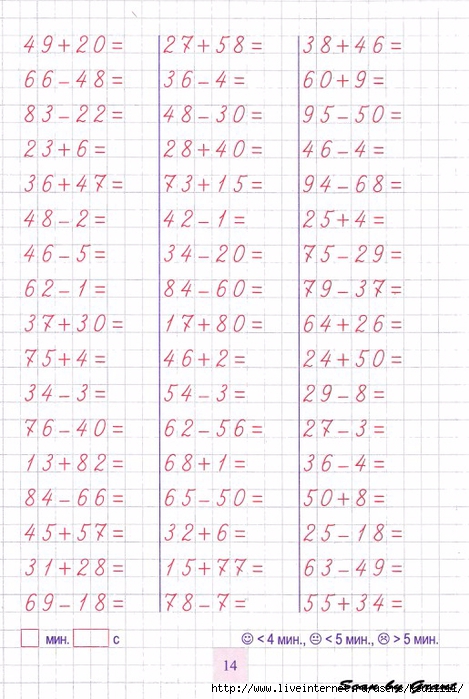 49+20= 27+58= 38+46=
66-48= 36-4= 60+9=
83-22= 48-30= 95-50=
23+6= 28+40= 46-4=
36+47= 73+15= 94-68=
48-2= 42-1= 25+4=
46-5= 34-20= 75-29=
62-1= 84-60= 79-37=
37+30= 17+80= 64+26=
75+4= 46+2= 24+50=
34-3= 54-3= 29-8=
76-40= 62-56= 27-3=
13+82= 68+1= 36-4=
84-66= 65-50= 50+8=
45+57= 32+6= 25-18=
31+28= 15+77= 63-49=
69-18= 78-7= 55+34=
мин. с < 4 мин., < 5 мин., > 5 мин.
14
Scan by